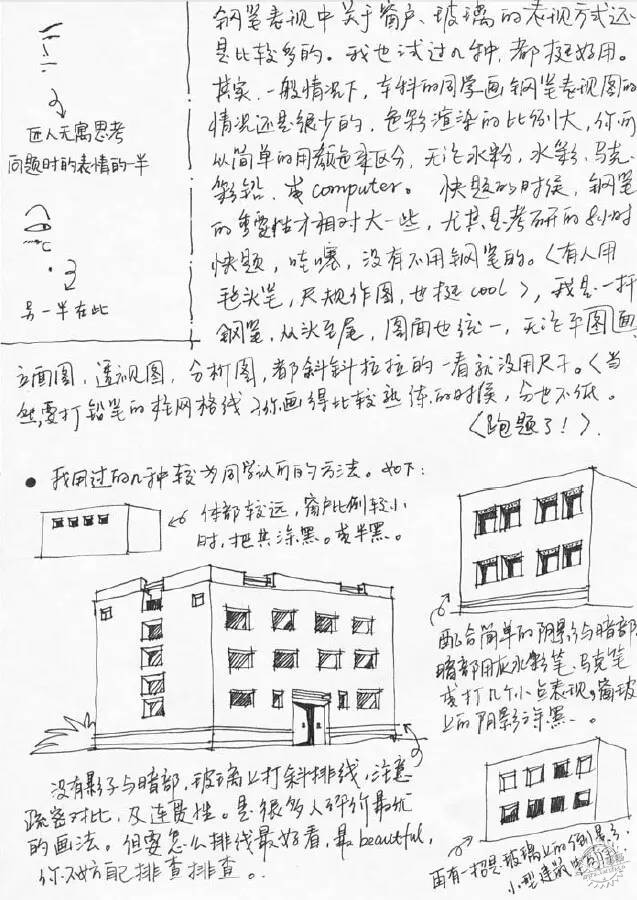 钢笔表现中关于窗户、玻璃的表现方式还
是比较多的。我也试过几种，都挺好用。
其实，一般情况下，本科的同学画钢笔表现图的
情况还是很少的，色彩渲染的比例大，你可
以简单的用颜色来区分，无论水粉，水彩，马克，
彩铅，或computer。快题的时候，钢笔
的重要性才相对大一些，尤其是考研的8小时
快题，哇噻，没有不用钢笔的。〈有人用
毛头笔，尺规作图，也挺cool〉，我是一杆
钢笔，从头至尾，图面也统一，无论平面图
立面图，透视图，分析图，都斜斜拉拉的一看就没用尺子。〈当
然，要打铅笔的柱网格线〉你画得比较熟练的时候，分也不低。
〈跑题了！〉
匠人无寓思考
问题时的表情的一半
另一半在此
● 我用过的几种较为同学认可的方法。如下：
体部较远，窗户比例较小
时，把其涂黑。或半黑。
配合简单的阴影与暗部，
暗部用灰水彩笔、马克笔
或打几个小点表现。窗玻
上的阴影涂黑。
没有影子与暗部，玻璃上打斜排线，注意
疏密对比，及连贯性。是很多人评价最优
的画法。但要怎么排线最好看，最beautful，
你不妨自己排查排查。
再有一招是玻璃上的倒影，
小型建筑